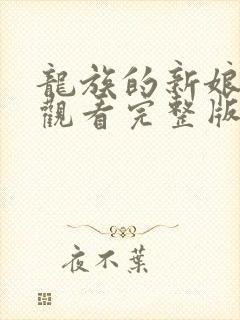 龍族的新娘
觀看完整版
夜不葉